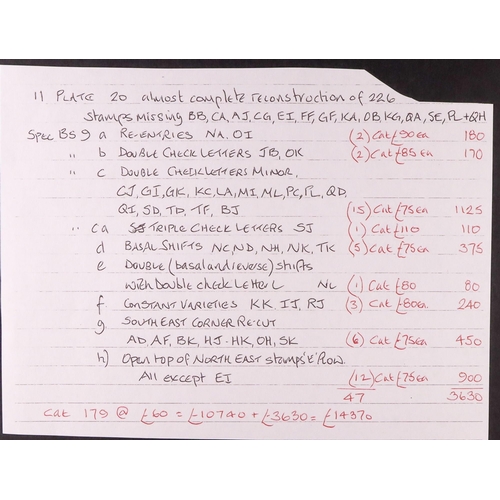 11 PLATE 20 almost complete reconstruction of 226
Stamps missing BB, CA, AJ, CG, EI, FF, GF, KA, OB, KG, QA, SE, PL + QH
Spec BS9 a RE-ENTRIES NA, OI (2) Cat £90 ea 180
" b DOUBLE CHECK LETTERS JB, OK (2) Cat £85 ea 170
" c DOUBLE CHECK LETTERS MINOR,
CJ, GI, GK, KC, LA, MI, ML, PC, PL, QD,
QI, SD, TD, TF, BJ (15) Cat £75 ea 1125
" ca TRIPLE CHECK LETTERS SJ (1) Cat £110 110
d BASAL SHIFTS NC, ND, NH, NK, TK (5) Cat £75 ea 375
e DOUBLE (basal and reverse) shifts
with Double check letter L NL (1) Cat £80 80
f CONSTANT VARIETIES KK, IJ, RJ (3) Cat £80 ea. 240
g SOUTH EAST CORNER RE-CUT
AD, AF, BK, HJ-HK, OH, SK (6) Cat £75 ea 450
h) Open top of NORTH EAST stamps 'E' Row.
All except EI (12) Cat £75 ea 900
47 3630
Cat 179 @ £60 = £10740 + £3630 = £14370